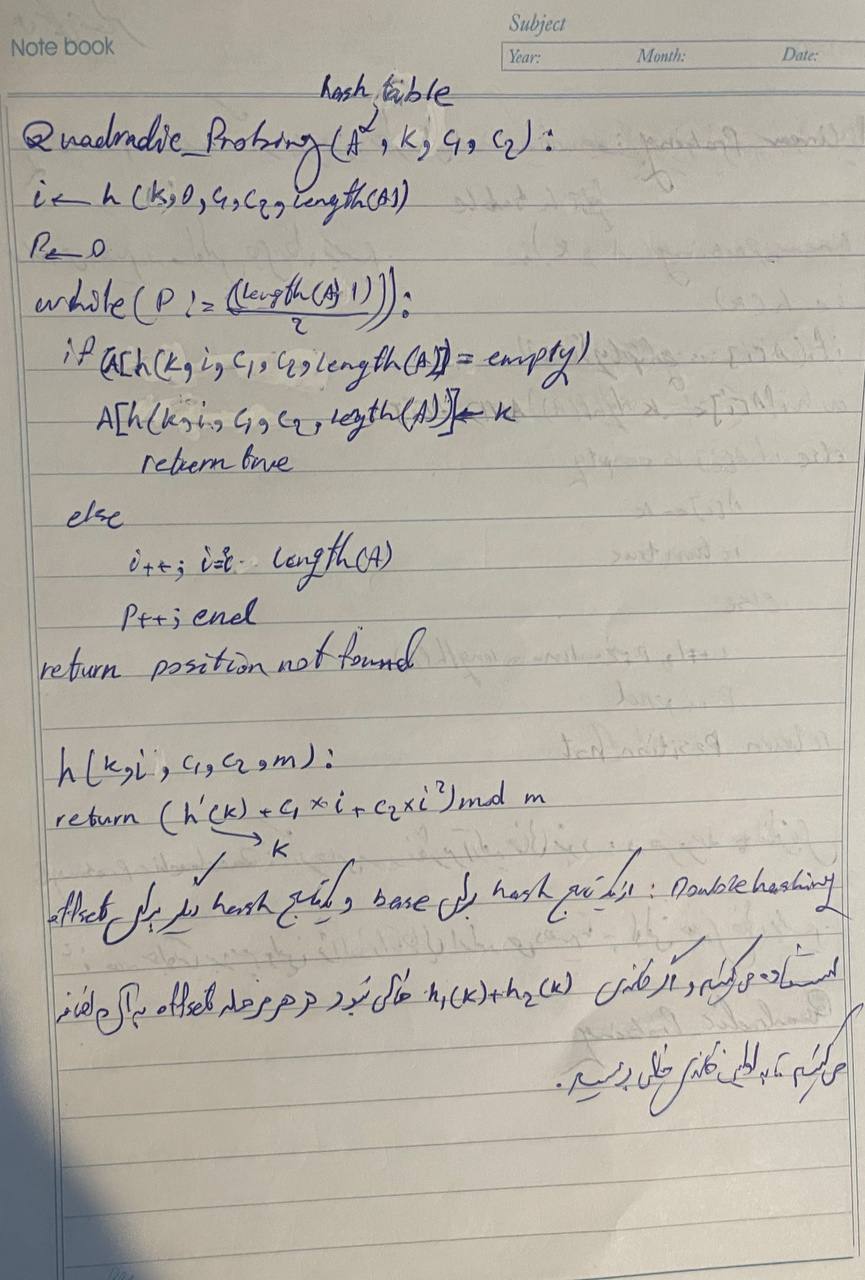 Note book
Subject
Year: Month: Date:
hash table
Quadradic_Probing(A, k, c1, c2):
i ← h(k, 0, c1, c2, length(A))
P ← 0
while (P != (length(A)-1)/2):
if (A[h(k, i, c1, c2, length(A))] = empty)
A[h(k, i, c1, c2, length(A))] ← k
return true
else
i++; length(A)
P++; end
return position not found
h(k, i, c1, c2, m):
return (h'(k) + c1 × i + c2 × i²) mod m
k
Double hashing : از یک تابع hash برای base و یک تابع hash دیگر برای offset
استفاده می‌کنیم و اگر خانه‌ی h1(k)+h2(k) خالی نبود در هر مرحله offset به آن اضافه
می‌کنیم تا به اولین خانه‌ی خالی برسیم.